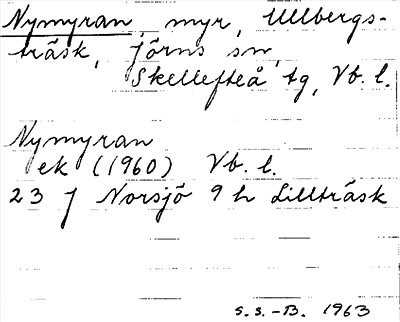 Nymyran, myr, Ullbergs-
träsk, Jörns sn,
Skellefteå tg, Vb. l.
Nymyran
ek (1960) Vb. l.
23 J Norsjö 9 h Lillträsk
S. S.-B. 1963